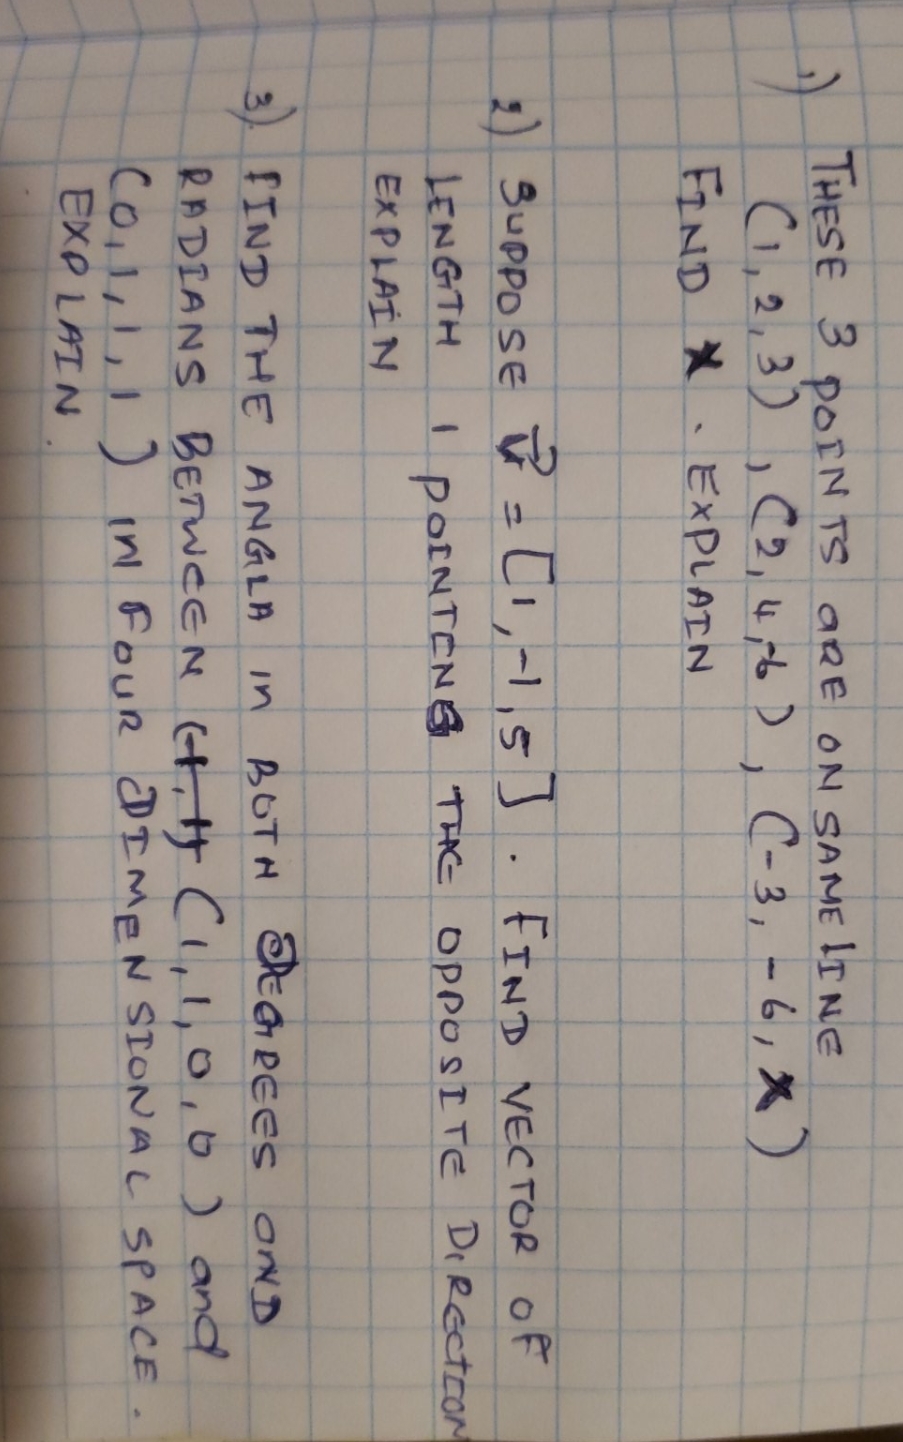 1) THESE 3 POINTS ARE ON SAME LINE
(1, 2, 3), (2, 4, -6), (-3, -6, X)
FIND X. EXPLAIN
2) SUPPOSE V⃗ = [1, -1, 5]. FIND VECTOR OF
LENGTH 1 POINTING THE OPPOSITE DIRECTION
EXPLAIN
3) FIND THE ANGLA in BOTH DEGREES OND
RADIANS BETWEEN (1, 1, 0, 0) and
(0, 1, 1, 1) in FOUR DIMENSIONAL SPACE.
EXPLAIN.